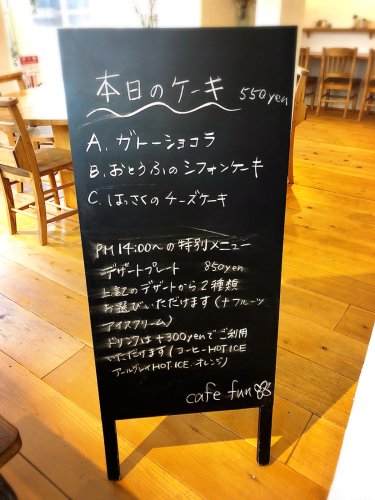 本日のケーキ 550yen
A. ガトーショコラ
B. おとうふのシフォンケーキ
C. はっさくのチーズケーキ
PM 14:00〜の特別メニュー
デザートプレート 850yen
上記のデザートから2種類
お選びいただけます(+フルーツ
アイスクリーム)
ドリンクは+300yenでご利用
いただけます(コーヒーHOT ICE
アールグレイHOT ICE. オレンジ)
cafe fun